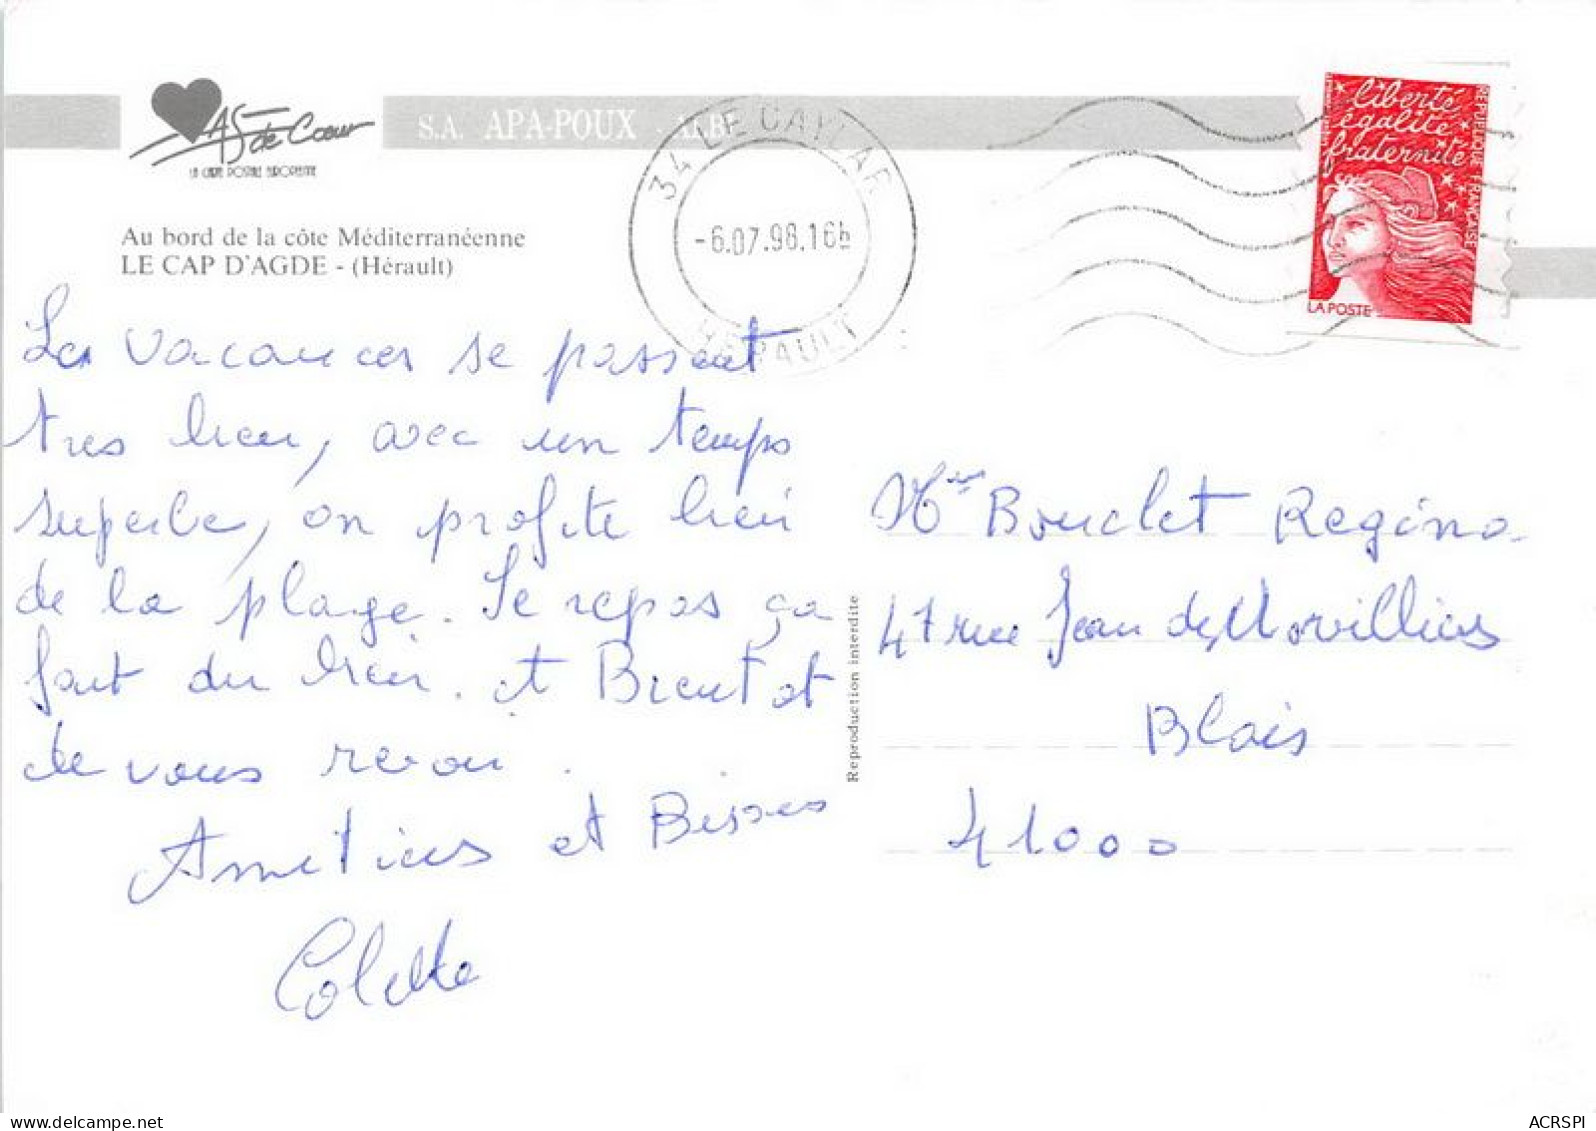 AS de Cœur
LA CARTE POSTALE EUROPEENNE
S.A. APA-POUX - ALBI
34 LE CAYLAR
-6.07.98.16h
HERAULT
liberté
égalité
fraternité
REPUBLIQUE FRANÇAISE
LA POSTE
Au bord de la côte Méditerranéenne
LE CAP D'AGDE - (Hérault)
Les vacances se passent
tres bien, avec un temps
superbe, on profite bien
de la plage. Se repos ça
fait du bien. et Bientot
de vous revoir.
Amitiées et Bisses
Colette
Reproduction interdite
Mme Bouclet Regina
47 rue Jean de Morvilliers
Blois
41000
ACRSPI